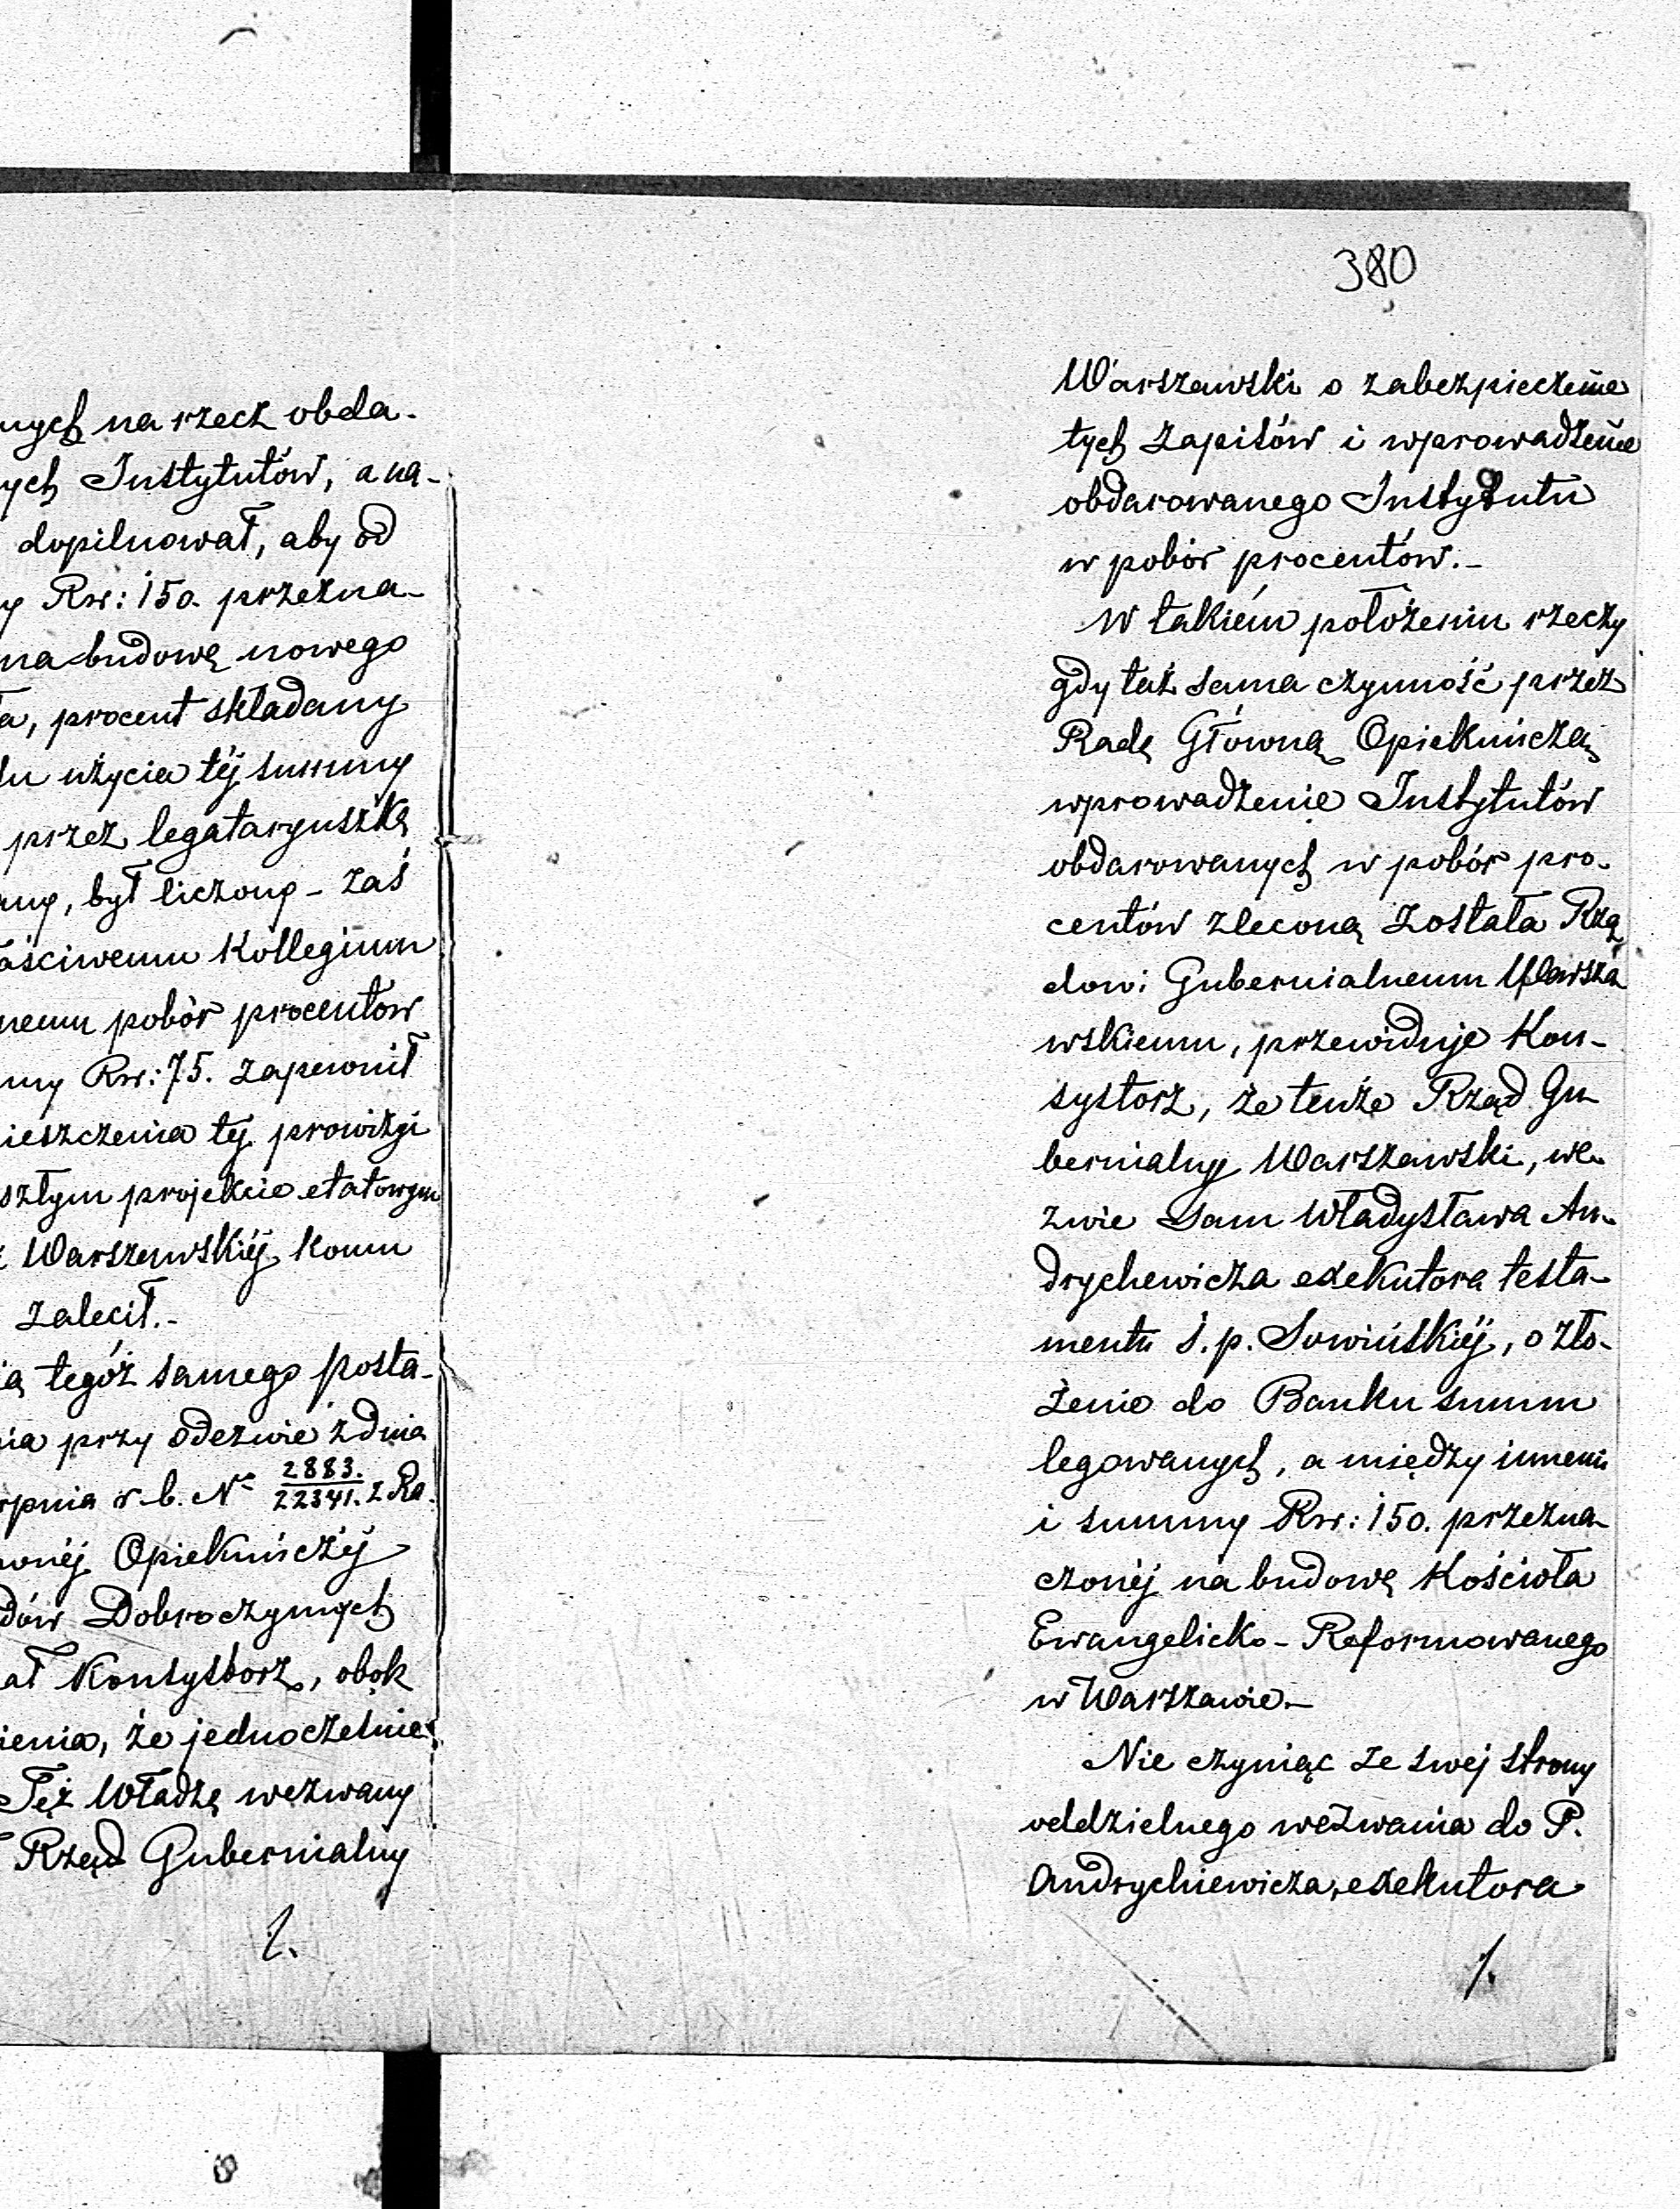 nych na rzecz obda-
ych Instytutów, a na-
dopilnował, aby od
y Rsr: 150. przezna-
na budowę nowego
a, procent składany
du użycia téj summy
przez legataryuszkę
any, był liczony – zaś
aściwemu Kollegium
nemu pobór procentów
my Rsr: 75. zapewnił
ieszczenia téj prowizyi
szłym projekcie etatowym
Warszawskiéj komu
zalecił.-
ią tegóż samego posta-
nia przy odezwie z dnia
rpnia r. b. N° 2883./22341. z Ra
wnéj Opiekuńczéj
dów Dobroczynnych
ał Konsystorz, obok
ienia, że jednocześnie
Też Władzę wezwany
Rząd Gubernialny
380
Warszawski o zabezpieczenie
tych zapisów i wprowadzenie
obdarowanego Instytutu
w pobór procentów.-
W takiém położeniu rzeczy
gdy taż sama czynność przez
Radę Główną Opiekuńczą
wprowadzenie Instytutów
obdarowanych w pobór pro-
centów zleconą została Rzą
dowi Gubernialnemu Warsza
wskiemu, przewiduje Kon-
systorz, że tenże Rząd Gu-
bernialny Warszawski, we-
zwie sam Władysława An-
drychewicza exekutora testa-
mentu ś. p. Sowińskiéj, o zło-
żenie do Banku summ
legowanych, a między innemi
i summy Rsr: 150. przezna-
czonéj na budowę Kościoła
Ewangelicko-Reformowanego
w Warszawie.-
Nie czyniąc ze swéj strony
oddzielnego wezwania do P.
Andrychiewicza, exekutora